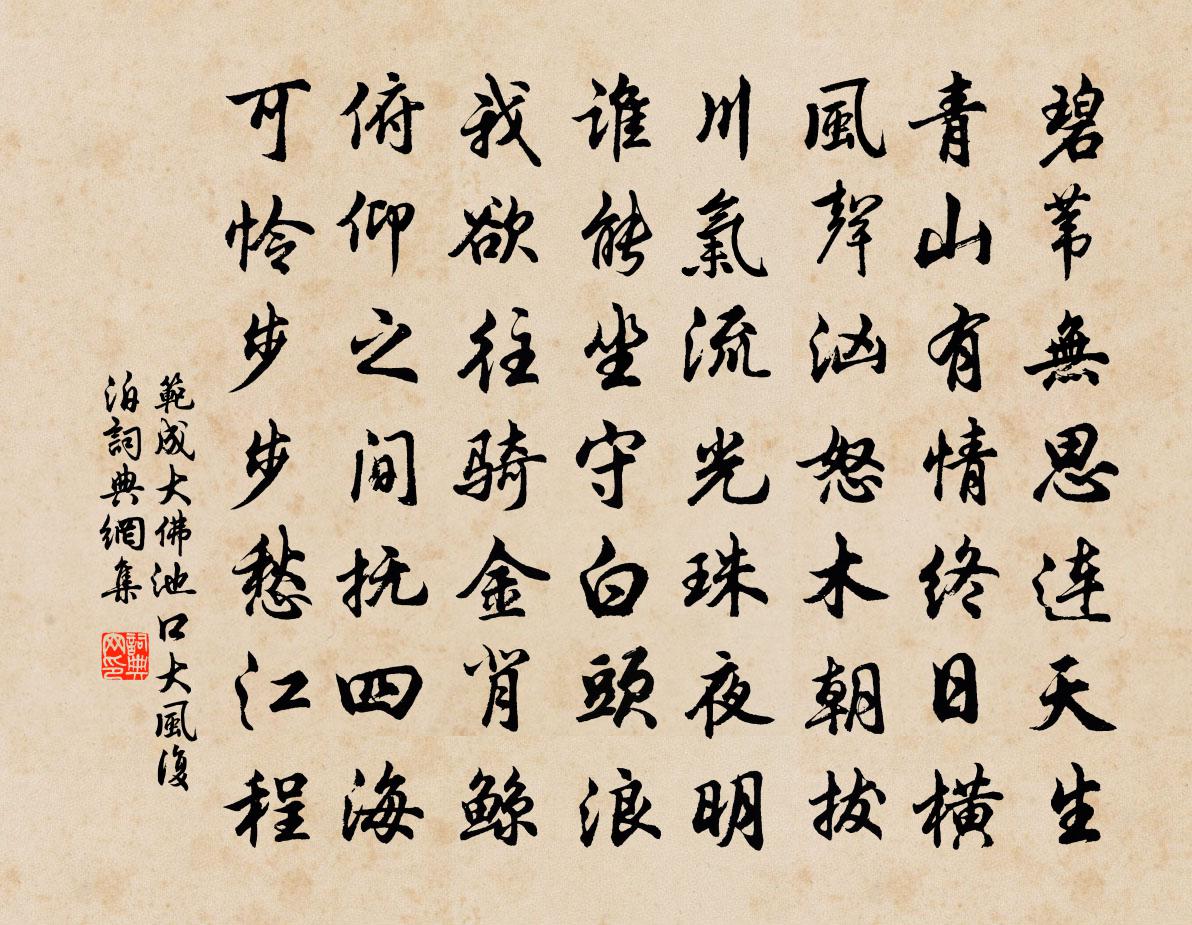 碧苇無思连天生
青山有情终日橫
風聲汹怒木朝拔
川氣流光珠夜明
谁能坐守白頭浪
我欲往骑金背鲸
俯仰之间抚四海
可怜步步愁江程
範成大佛池口大風復
泊詞典網集
詞典
网印